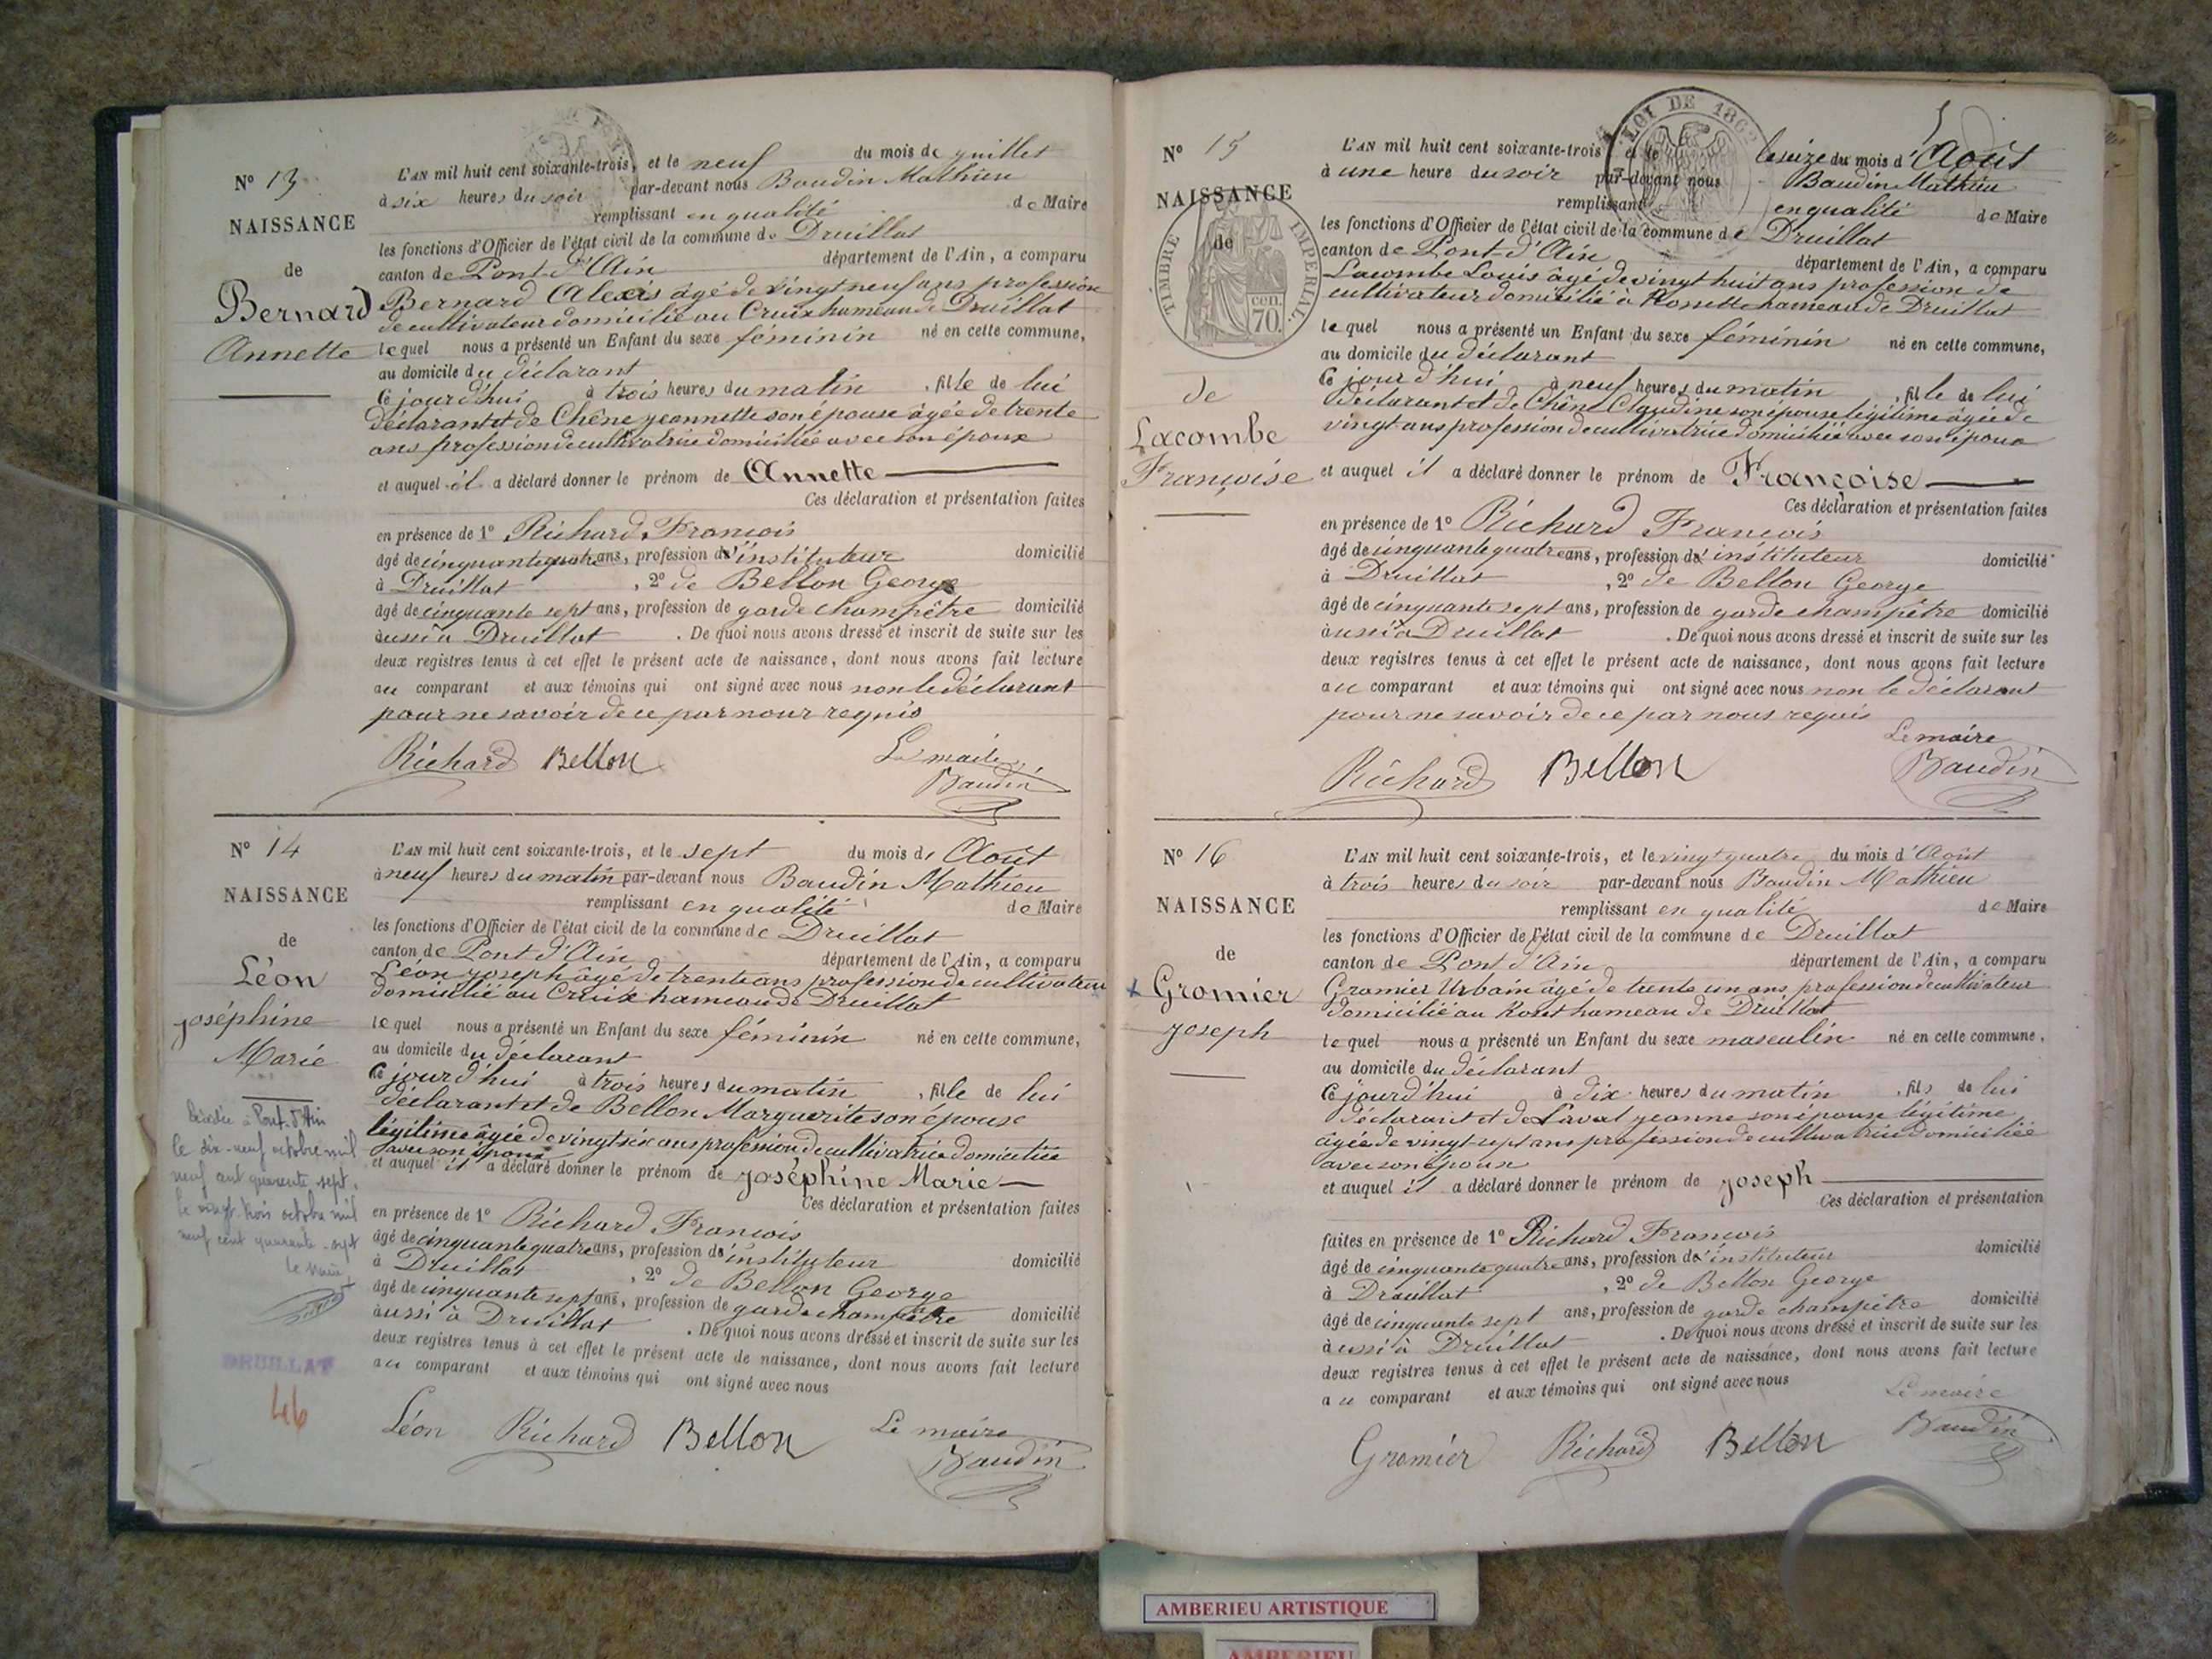 N° 13
NAISSANCE
de
Bernard
Annette
L'AN mil huit cent soixante-trois, et le neuf du mois de juillet
à six heures du soir par-devant nous Baudin Mathieu
remplissant en qualité de Maire
les fonctions d'Officier de l'état civil de la commune de Druillat
canton de Pont d'Ain département de l'Ain, a comparu
Bernard Alexis âgé de vingt neuf ans profession
de cultivateur domicilié au Cruix hameau de Druillat
lequel nous a présenté un Enfant du sexe féminin né en cette commune,
au domicile du déclarant
Ce jourd'hui à trois heures du matin, fille de lui
déclarant et de Chêne jeannette son épouse âgée de trente
ans profession de cultivatrice domiciliée avec son époux
et auquel il a déclaré donner le prénom de Annette
Ces déclaration et présentation faites
en présence de 1° Richard François
âgé de cinquante quatre ans, profession d'instituteur domicilié
à Druillat, 2° de Bellon George
âgé de cinquante sept ans, profession de garde champêtre domicilié
aussi à Druillat. De quoi nous avons dressé et inscrit de suite sur les
deux registres tenus à cet effet le présent acte de naissance, dont nous avons fait lecture
au comparant et aux témoins qui ont signé avec nous non le déclarant
pour ne savoir de ce par nous requis
Richard Bellon Le maire
Baudin
N° 14
NAISSANCE
de
Léon
joséphine
Marie
Décédée à Pont-d'Ain
le dix-neuf octobre mil
neuf cent quarante sept.
le vingt-trois octobre mil
neuf cent quarante-sept
le Maire
DRUILLAT
46
L'AN mil huit cent soixante-trois, et le sept du mois d'Août
à neuf heures du matin par-devant nous Baudin Mathieu
remplissant en qualité de Maire
les fonctions d'Officier de l'état civil de la commune de Druillat
canton de Pont d'Ain département de l'Ain, a comparu
Léon joseph âgé de trente ans profession de cultivateur
domicilié au Cruix hameau de Druillat
lequel nous a présenté un Enfant du sexe féminin né en cette commune,
au domicile du déclarant
Ce jourd'hui à trois heures du matin, fille de lui
déclarant et de Bellon Marguerite son épouse
légitime âgée de vingt six ans profession de cultivatrice domiciliée
avec son époux
et auquel il a déclaré donner le prénom de joséphine Marie
Ces déclaration et présentation faites
en présence de 1° Richard François
âgé de cinquante quatre ans, profession d'instituteur domicilié
à Druillat, 2° de Bellon George
âgé de cinquante sept ans, profession de garde champêtre domicilié
aussi à Druillat. De quoi nous avons dressé et inscrit de suite sur les
deux registres tenus à cet effet le présent acte de naissance, dont nous avons fait lecture
au comparant et aux témoins qui ont signé avec nous
Léon Richard Bellon Le maire
Baudin
N° 15
NAISSANCE
de
TIMBRE IMPERIAL
cen. 70.
de
Lacombe
Françoise
LOI DE 1862
L'AN mil huit cent soixante-trois et le le seize du mois d'Août
à une heure du soir par-devant nous Baudin Mathieu
remplissant en qualité de Maire
les fonctions d'Officier de l'état civil de la commune de Druillat
canton de Pont-d'Ain département de l'Ain, a comparu
Lacombe Louis âgé de vingt huit ans profession de
cultivateur domicilié à Rossette hameau de Druillat
lequel nous a présenté un Enfant du sexe féminin né en cette commune,
au domicile du déclarant
Ce jourd'hui à neuf heures du matin, fille de lui
déclarant et de Chêne Claudine son épouse légitime âgée de
vingt ans profession de cultivatrice domiciliée avec son époux
et auquel il a déclaré donner le prénom de Françoise
Ces déclaration et présentation faites
en présence de 1° Richard François
âgé de cinquante quatre ans, profession d'instituteur domicilié
à Druillat, 2° de Bellon George
âgé de cinquante sept ans, profession de garde champêtre domicilié
aussi à Druillat. De quoi nous avons dressé et inscrit de suite sur les
deux registres tenus à cet effet le présent acte de naissance, dont nous avons fait lecture
au comparant et aux témoins qui ont signé avec nous non le déclarant
pour ne savoir de ce par nous requis
Le maire
Richard Bellon Baudin
N° 16
NAISSANCE
de
Gromier
joseph
L'AN mil huit cent soixante-trois, et le vingt quatre du mois d'Août
à trois heures du soir par-devant nous Baudin Mathieu
remplissant en qualité de Maire
les fonctions d'Officier de l'état civil de la commune de Druillat
canton de Pont d'Ain département de l'Ain, a comparu
Gromier Urbain âgé de trente un ans profession de cultivateur
domicilié au hameau de Druillat
lequel nous a présenté un Enfant du sexe masculin né en cette commune,
au domicile du déclarant
Ce jourd'hui à dix heures du matin, fils de lui
déclarant et de Laval jeanne son épouse légitime
âgée de vingt-sept ans profession de cultivatrice domiciliée
avec son époux
et auquel il a déclaré donner le prénom de joseph
Ces déclaration et présentation
faites en présence de 1° Richard François
âgé de cinquante quatre ans, profession d'instituteur domicilié
à Druillat, 2° de Bellon George
âgé de cinquante sept ans, profession de garde champêtre domicilié
aussi à Druillat. De quoi nous avons dressé et inscrit de suite sur les
deux registres tenus à cet effet le présent acte de naissance, dont nous avons fait lecture
au comparant et aux témoins qui ont signé avec nous
Le maire
Gromier Richard Bellon Baudin
AMBERIEU ARTISTIQUE
AMBERIEU